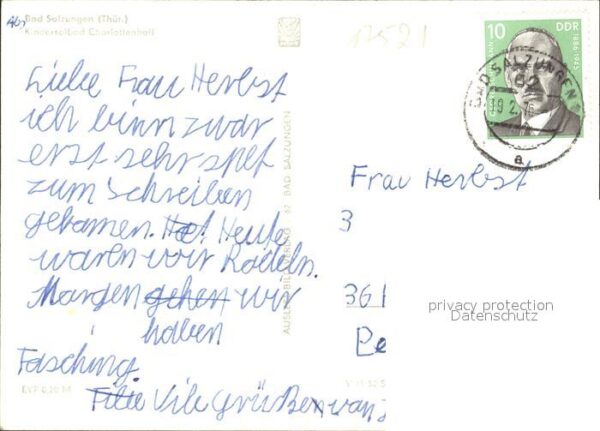 Bad Salzungen (Thür.)
Kindersolbad Charlottenhall
17521
Liebe Frau Herbst
ich binn zwar
erst sehr spet
zum Schreiben
gekamen. Hat Heute
waren wir Rodeln.
Morgen gehen wir
haben
Fasching.
Vile Grüße von
AUSLESE-BILD-VERLAG 62 BAD SALZUNGEN
EVP 0,20 M
10
DDR
1886-1945
BAD SALZUNGEN
a
Frau Herbst
3
361
privacy protection
Datenschutz